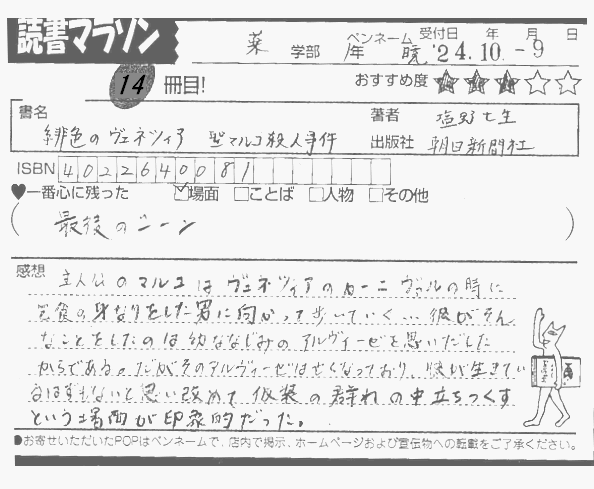 読書マラソン
薬 学部 1年 ペンネーム 暁 受付日 '24.10.-9 年 月 日
14 冊目! おすすめ度 ★★★☆☆
書名 緋色のヴェネツィア 聖マルコ殺人事件
著者 塩野七生
出版社 朝日新聞社
ISBN 4022640081
♥一番心に残った ☑場面 □ことば □人物 □その他
(最後のシーン)
感想 主人公のマルコはヴェネツィアのカーニヴァルの時に
の身なりをした男に向かって歩いていく…彼がそん
なことをしたのは幼ななじみのアルヴィーゼを思いだした
からである。だがそのアルヴィーゼは亡くなっており、彼が生きてい
るはずもないと思い改めて仮装の群れの中立ちつくす
という場面が印象的だった。
●お寄せいただいたPOPはペンネームで、店内で掲示、ホームページおよび宣伝物への転載をご了承ください。